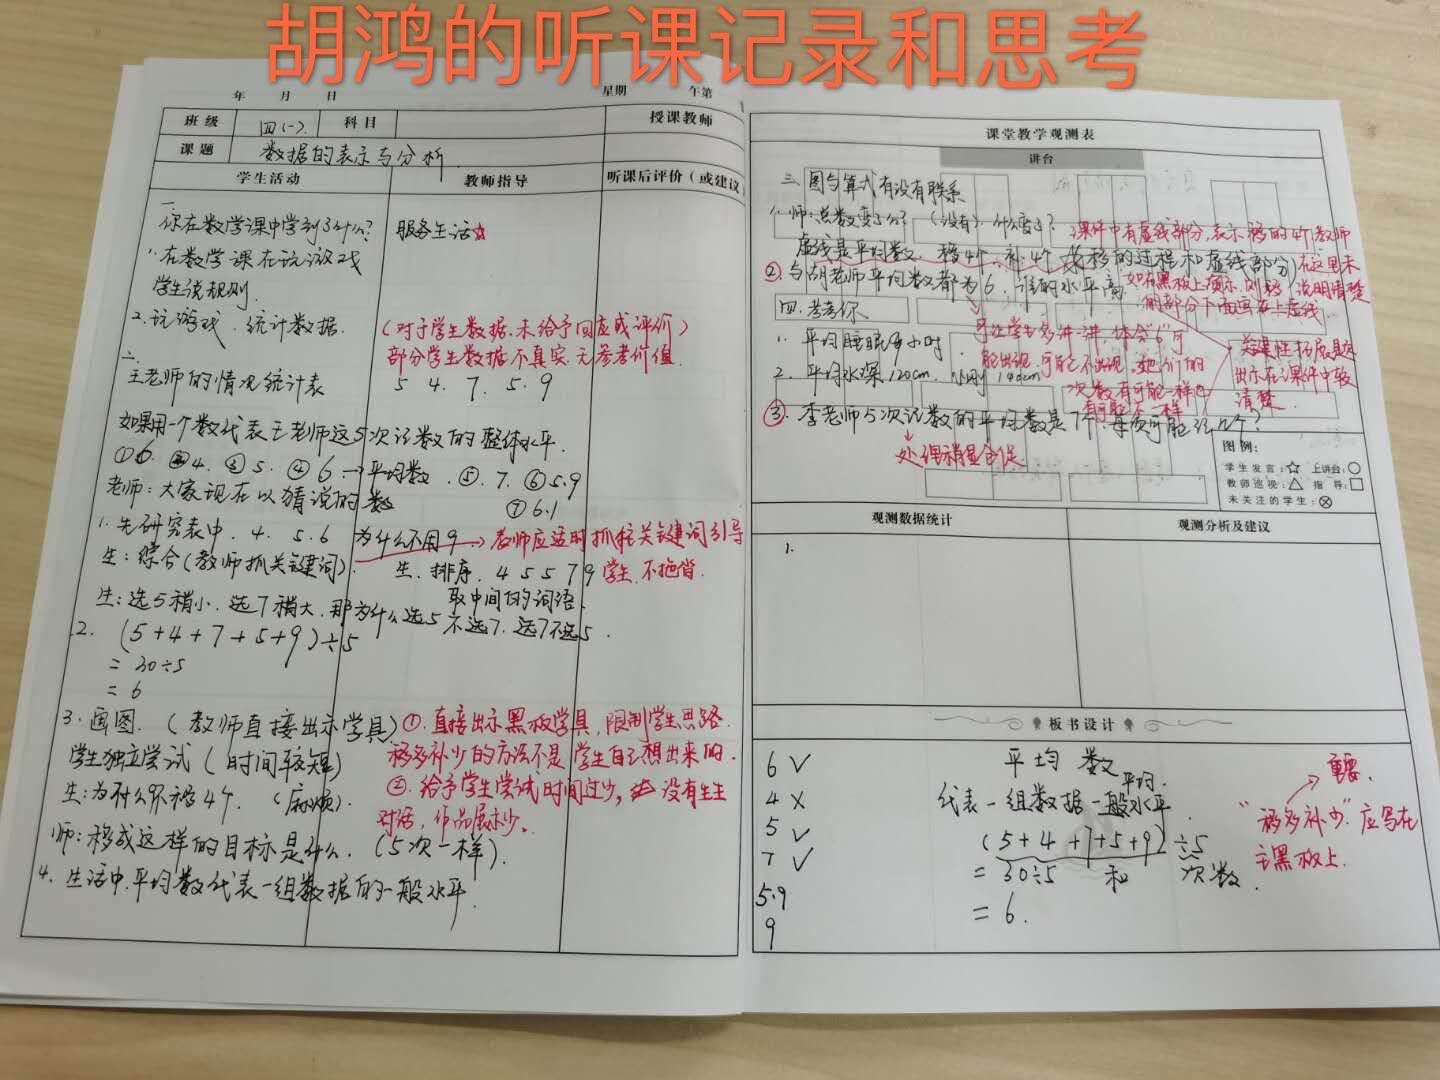 胡鸿的听课记录和思考
年 月 日 星期 午第
班级 四(一). 科目 授课教师
课题 数据的表示与分析.
学生活动 教师指导 听课后评价(或建议
一.
你在数学课中学到了什么? 服务生活☆
1.在数学课在玩游戏
学生说规则.
2.玩游戏.统计数据. (对于学生数据.未给予回应或评价)
部分学生数据不真实.无参考价值.
二、
王老师的情况统计表 5 4. 7. 5. 9
如果用一个数代表王老师这5次记数的整体水平.
①6. ②4. ③5. ④6→平均数. ⑤.7. ⑥5.9
老师:大家现在以猜说的数 ⑦6.1
1.先研究表中.4. 5.6 为什么不用9.→教师应适时抓住关键词引导
生:综合(教师抓关键词). 生.排序.4 5 5 7 9 学生.不拖沓.
取中间的词语.
生:选5稍小.选7稍大.那为什么选5不选7.选7不选5.
2. (5+4+7+5+9)÷5
=30÷5
=6
3.画图.(教师直接出示学具) ①.直接出示黑板学具,限制学生思路.
学生独立尝试(时间较短) 移多补少的方法不是学生自己想出来的.
生:为什么不移4个.(麻烦). ②.给予学生尝试时间过少,没有生生
对话,作品展示少。
师:移成这样的目标是什么.(5次一样).
4.生活中.平均数代表一组数据的一般水平.
课堂教学观测表
讲台
三.图与算式有没有联系
1.师:总数变了吗?(没有).什么变了? 课件中有虚线部分,表示移的4个,教师
虚线是平均数.移4个.补4个(移的过程和虚线部分)在这里未
②.与胡老师平均数都为6.谁的水平高 如在黑板上演示,则移 说明清楚
的部分下面画上虚线
四.考考你
可让学生多讲一讲,体会"6"可
1.平均睡眠9小时. 能出现.可能不出现.她们的
2.平均水深120cm. 小刚140cm 次数有可能一样也
有可能不一样
关键性拓展题
出示在课件中较
清楚.
③.李老师5次记数的平均数是7个.每次可能记几个?
处理稍显仓促
图例:
学生发言:☆ 上讲台:○
教师巡视:△ 指导:□
未关注的学生:⊗
观测数据统计 观测分析及建议
1.
板书设计
6 ✓ 平均数
4 × 平均.
代表一组数据一般水平.
5 ✓ (5+4+7+5+9)÷5
7 ✓ =30÷5 和 次数.
5.9 =6.
9
重要.
"移多补少".应写在
主黑板上.